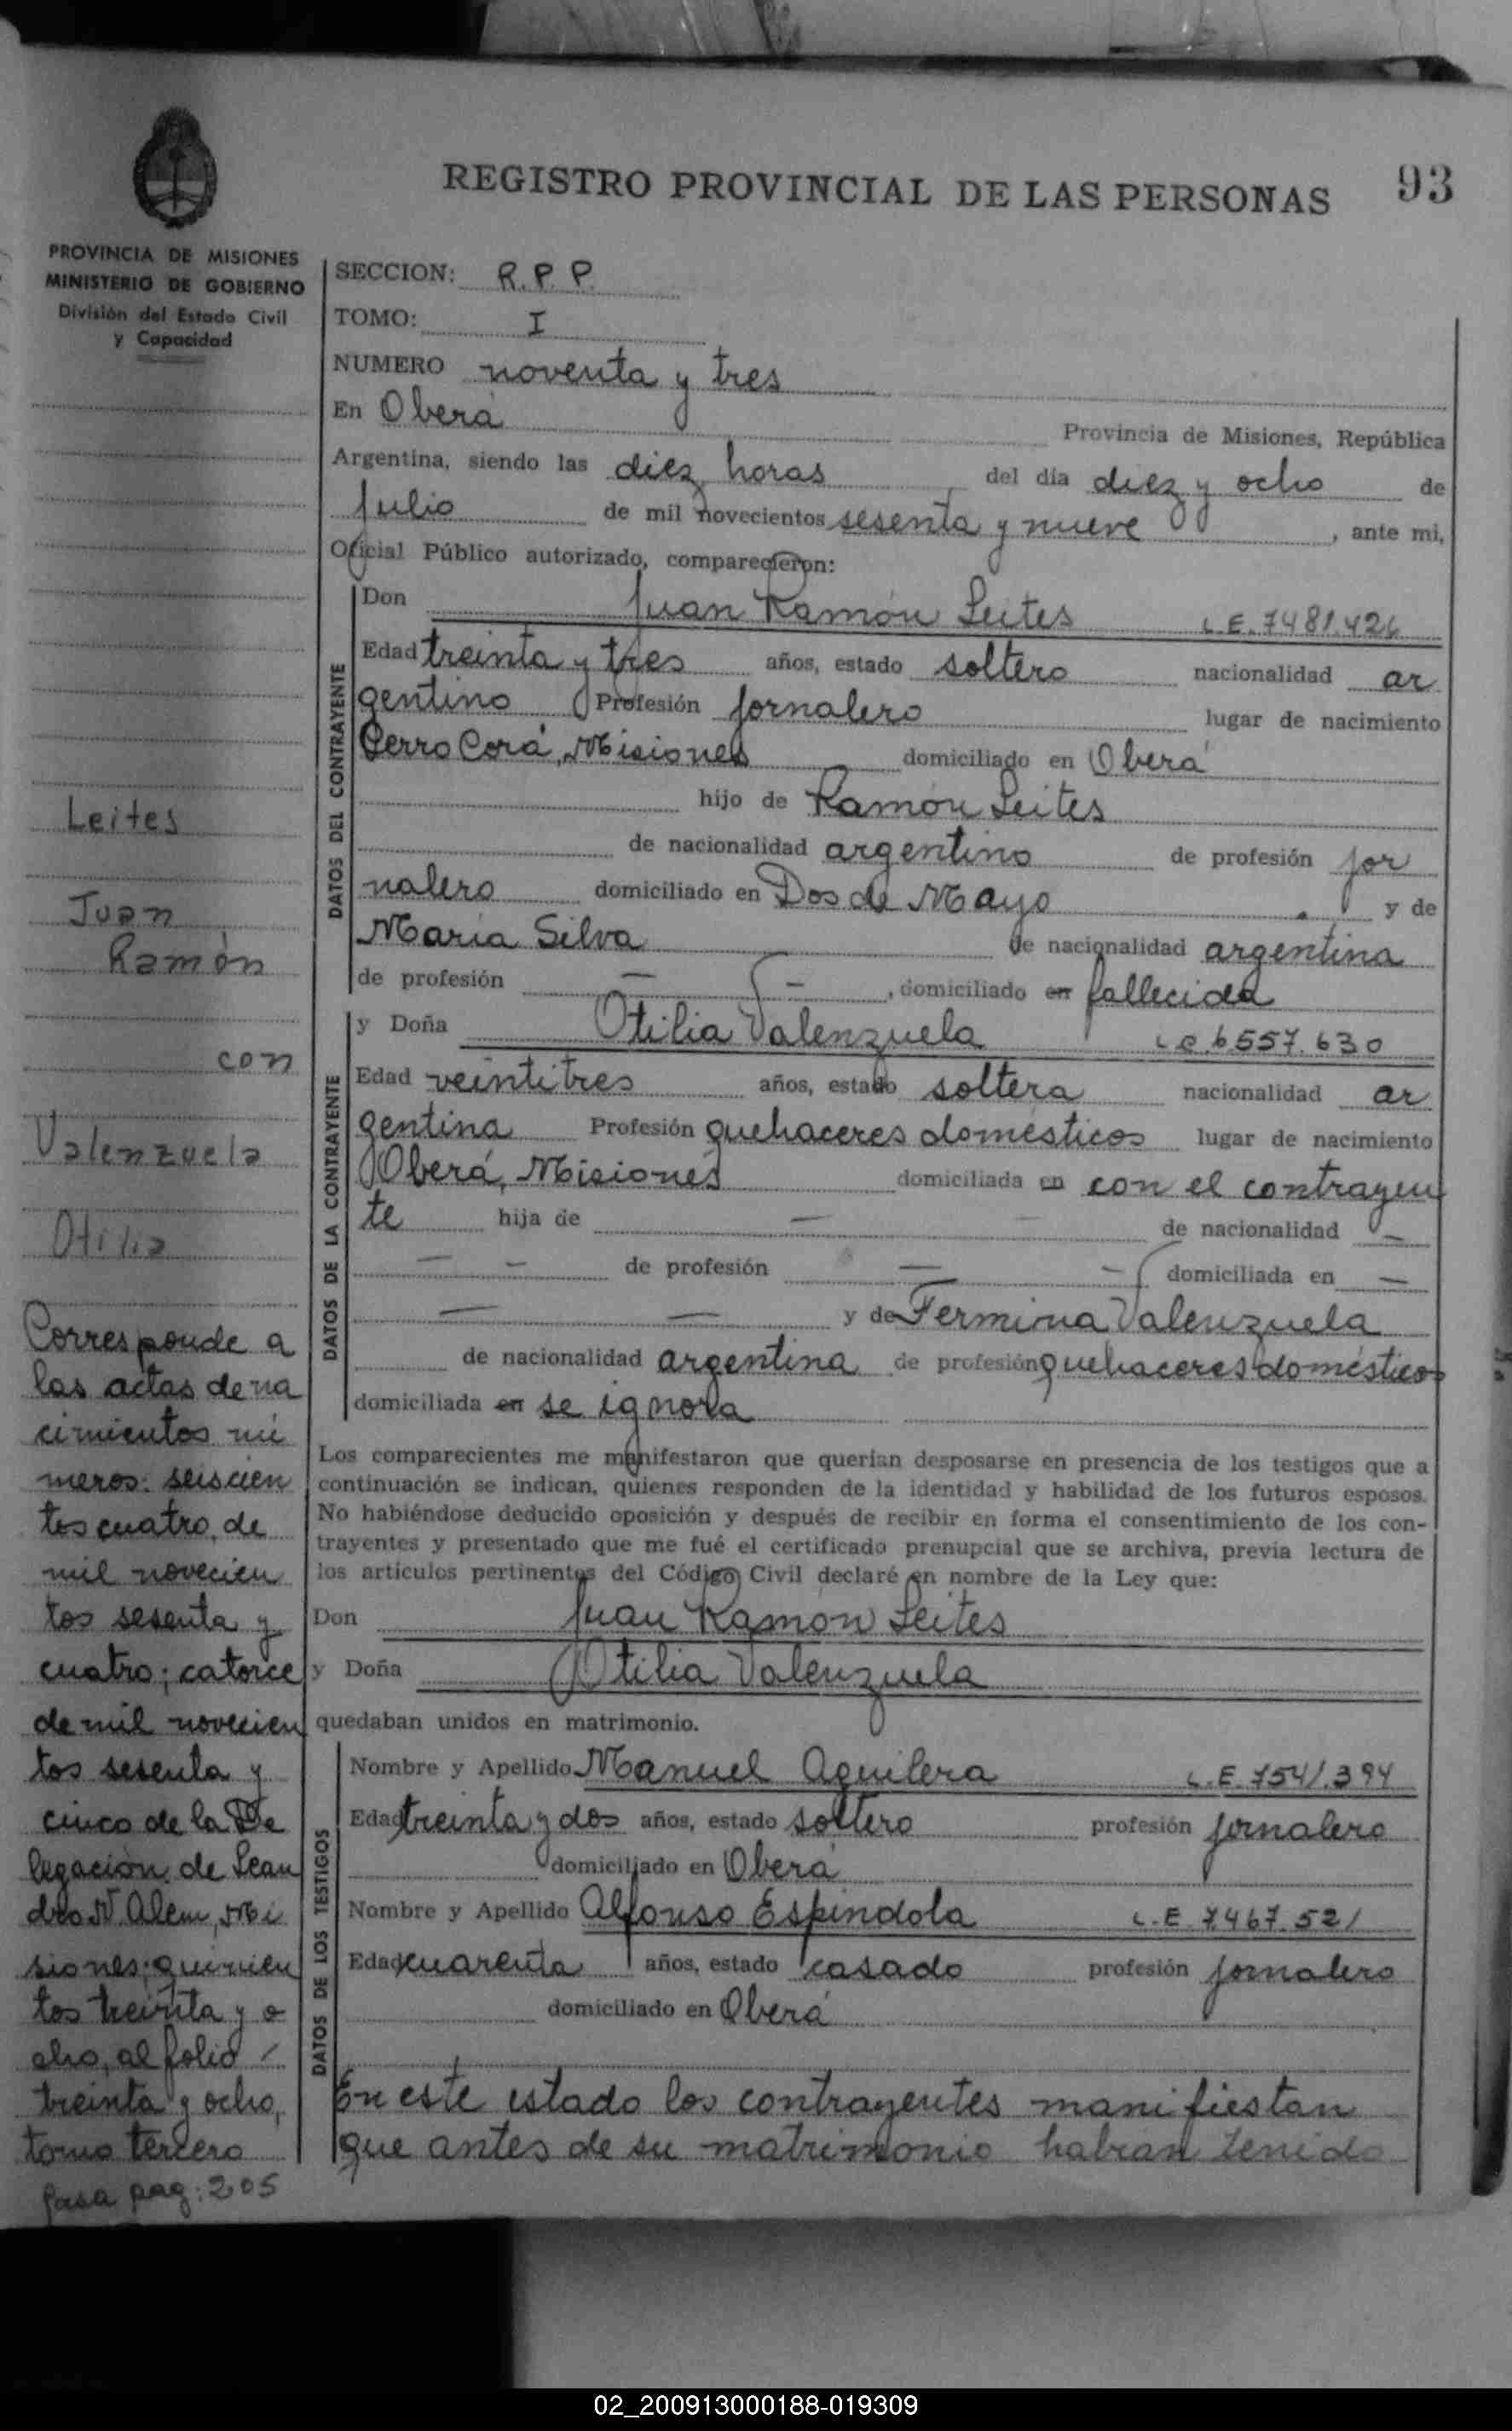 REGISTRO PROVINCIAL DE LAS PERSONAS 93
PROVINCIA DE MISIONES
MINISTERIO DE GOBIERNO
División del Estado Civil
y Capacidad
SECCION: R.P.P.
TOMO: I
NUMERO noventa y tres
En Oberá Provincia de Misiones, República
Argentina, siendo las diez horas del día diez y ocho de
Julio de mil novecientos sesenta y nueve, ante mi,
Oficial Público autorizado, comparecieron:
DATOS DEL CONTRAYENTE
Don Juan Ramón Leites L.E. 7481.426
Edad treinta y tres años, estado soltero nacionalidad ar
gentino Profesión jornalero lugar de nacimiento
Cerro Corá, Misiones domiciliado en Oberá
hijo de Ramón Leites
de nacionalidad argentino de profesión jor
nalero domiciliado en Dos de Mayo y de
María Silva de nacionalidad argentina
de profesión — — , domiciliado en fallecida
DATOS DE LA CONTRAYENTE
y Doña Otilia Valenzuela L.C. 6.557.630
Edad veintitres años, estado soltera nacionalidad ar
gentina Profesión quehaceres domésticos lugar de nacimiento
Oberá, Misiones domiciliada en con el contrayen
te hija de — de nacionalidad —
— — de profesión — — domiciliada en —
— — y de Fermina Valenzuela
de nacionalidad argentina de profesión quehaceres domésticos
domiciliada en se ignora
Los comparecientes me manifestaron que querían desposarse en presencia de los testigos que a
continuación se indican, quienes responden de la identidad y habilidad de los futuros esposos.
No habiéndose deducido oposición y después de recibir en forma el consentimiento de los con-
trayentes y presentado que me fué el certificado prenupcial que se archiva, previa lectura de
los artículos pertinentes del Código Civil declaré en nombre de la Ley que:
Don Juan Ramón Leites
y Doña Otilia Valenzuela
quedaban unidos en matrimonio.
DATOS DE LOS TESTIGOS
Nombre y Apellido Manuel Aguilera L.E. 7541.394
Edad treinta y dos años, estado soltero profesión jornalero
domiciliado en Oberá
Nombre y Apellido Alfonso Espindola L.E. 7.467.521
Edad cuarenta años, estado casado profesión jornalero
domiciliado en Oberá
En este estado los contrayentes manifiestan
que antes de su matrimonio habían tenido
Leites
Juan
Ramón
con
Valenzuela
Otilia
Corresponde a
las actas de na
cimientos nú
meros: seiscien
tos cuatro, de
mil novecien
tos sesenta y
cuatro; catorce
de mil novecien
tos sesenta y
cinco de la De
legación de Lean
dro N. Alem, Mi
siones; quinien
tos treinta y o
cho, al folio
treinta y ocho,
tomo tercero
pasa pag: 205
02_200913000188-019309